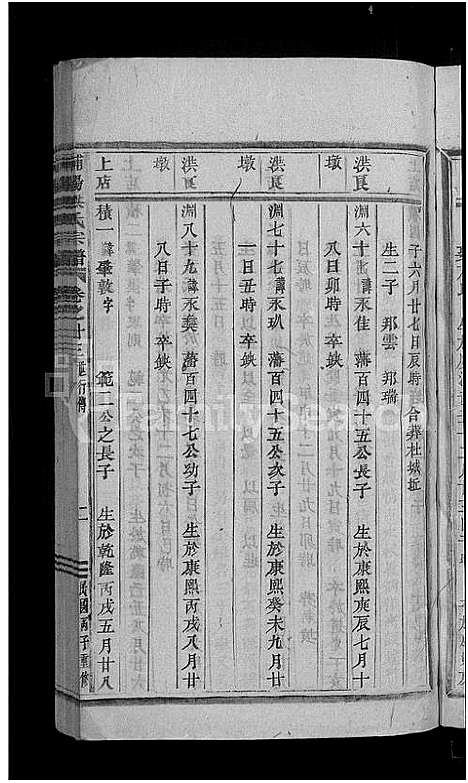 子六月廿七日辰時 合葬杜城坵
生二子 邦雲 邦瑞
洪良 淵六十 諱永佳 藩百四十五公長子 生於康熙庚辰七月十
墩 八日卯時 卒缺
洪良 淵七十七諱永玐 藩百四十五公次子 生於康熙癸未九月廿
墩 一日丑時 卒缺
洪良 淵八十九諱永奏 藩百四十七公幼子 生於康熙丙戌八月廿
墩 八日子時 卒缺
上店 積一 諱肇數字 範二公之長子 生於乾隆丙戌五月廿八
浦陽洪氏宗譜 卷之廿三 行傳 二 民國丙子重修